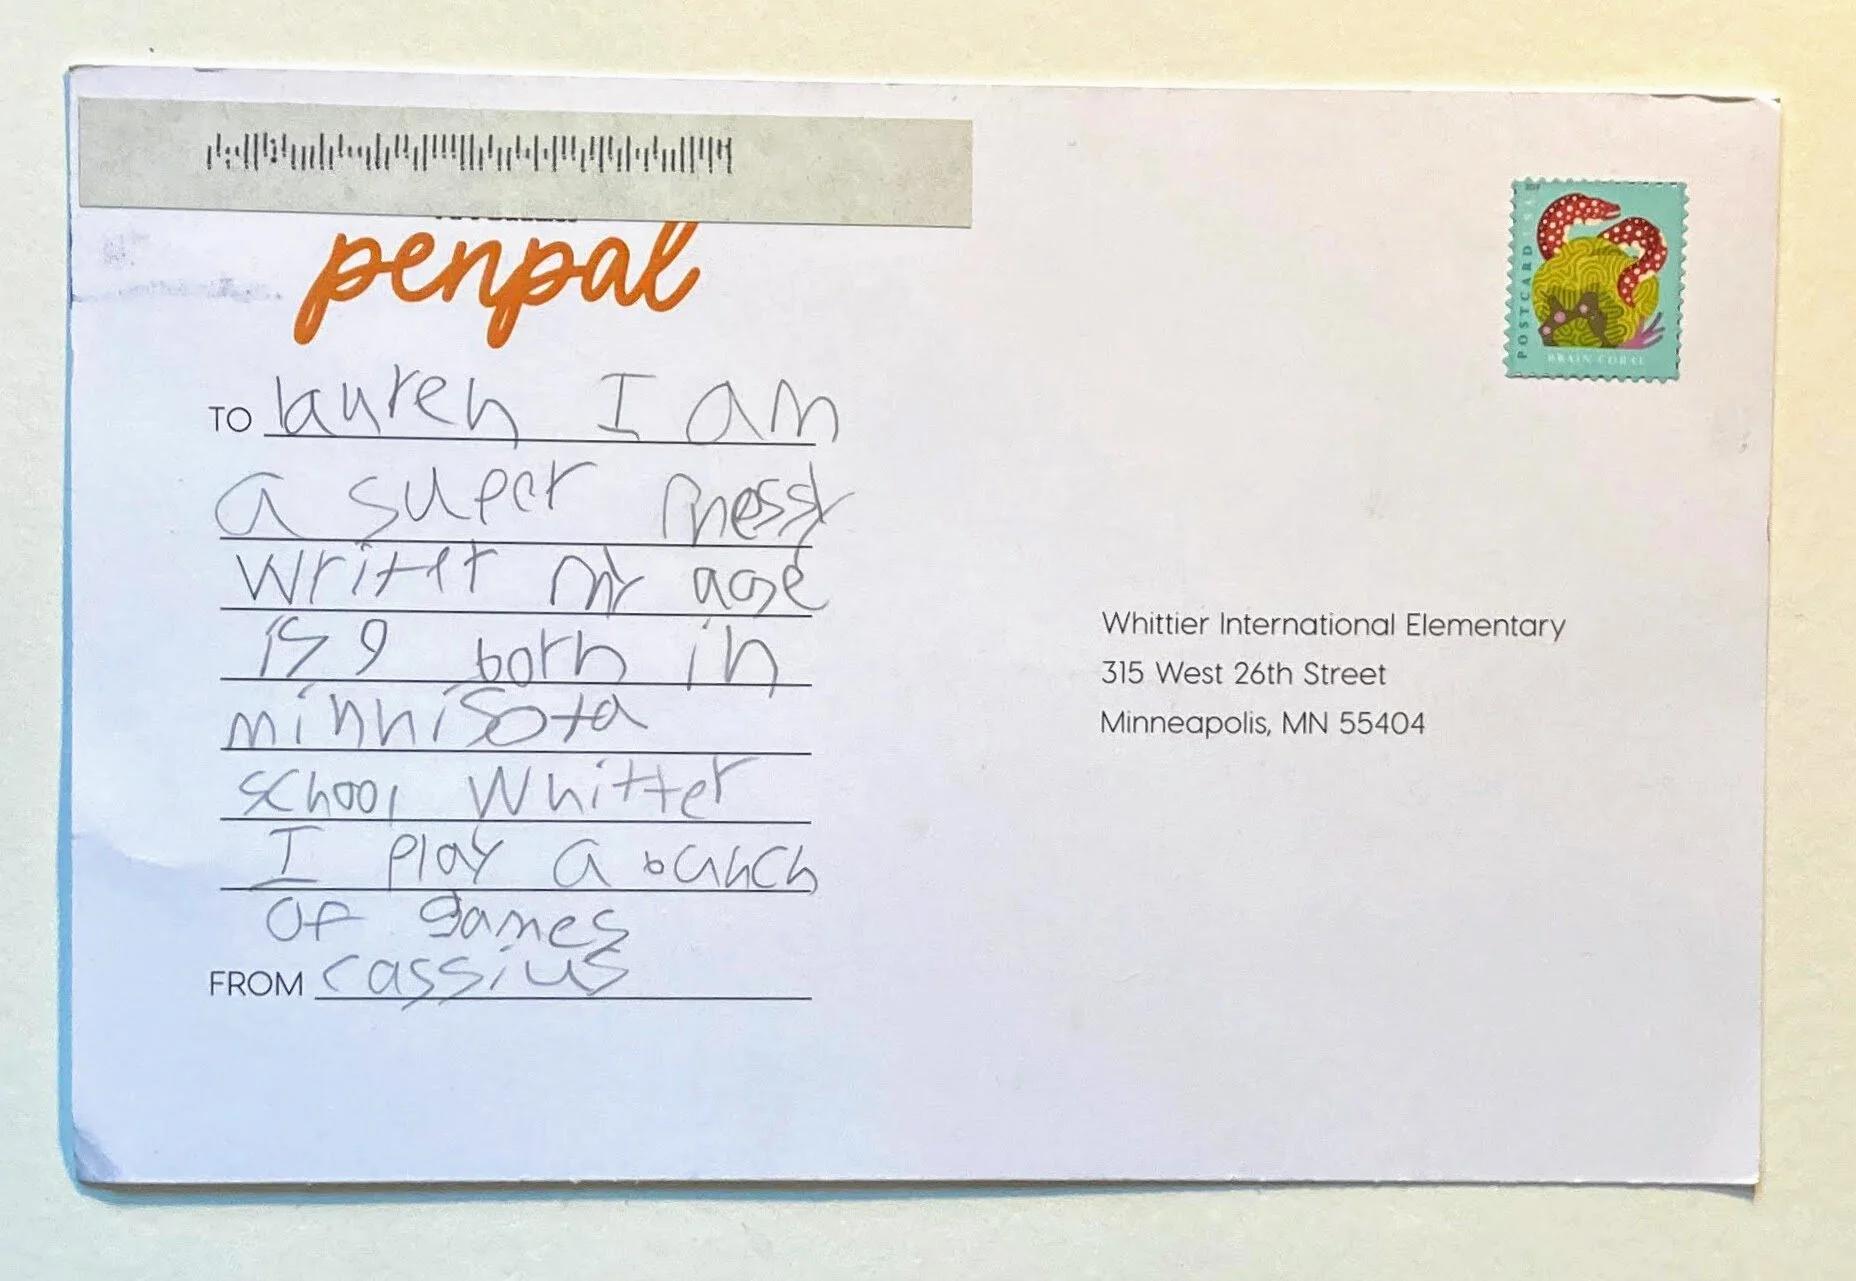 penpal
TO lauren I am
a super messy
writer my age
is 9 born in
minnisota
school Whitter
I play a bunch
OF games
FROM cassius
POSTCARD USA
BRAIN CORAL
Whittier International Elementary
315 West 26th Street
Minneapolis, MN 55404